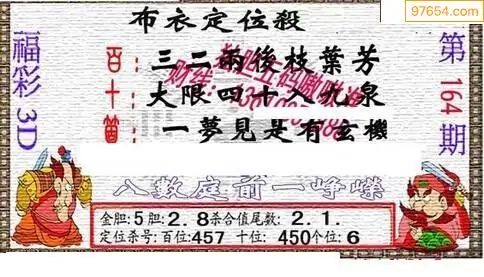 97654.com
布衣定位殺
福彩3D
第164期
百：三二兩後枝葉芳
十：大限四十入九泉
個：一夢見是有玄機
八數庭前一崢嶸
金胆:5 胆:2.8杀合值尾数:2.1.
定位杀号:百位:457 十位:450个位:6